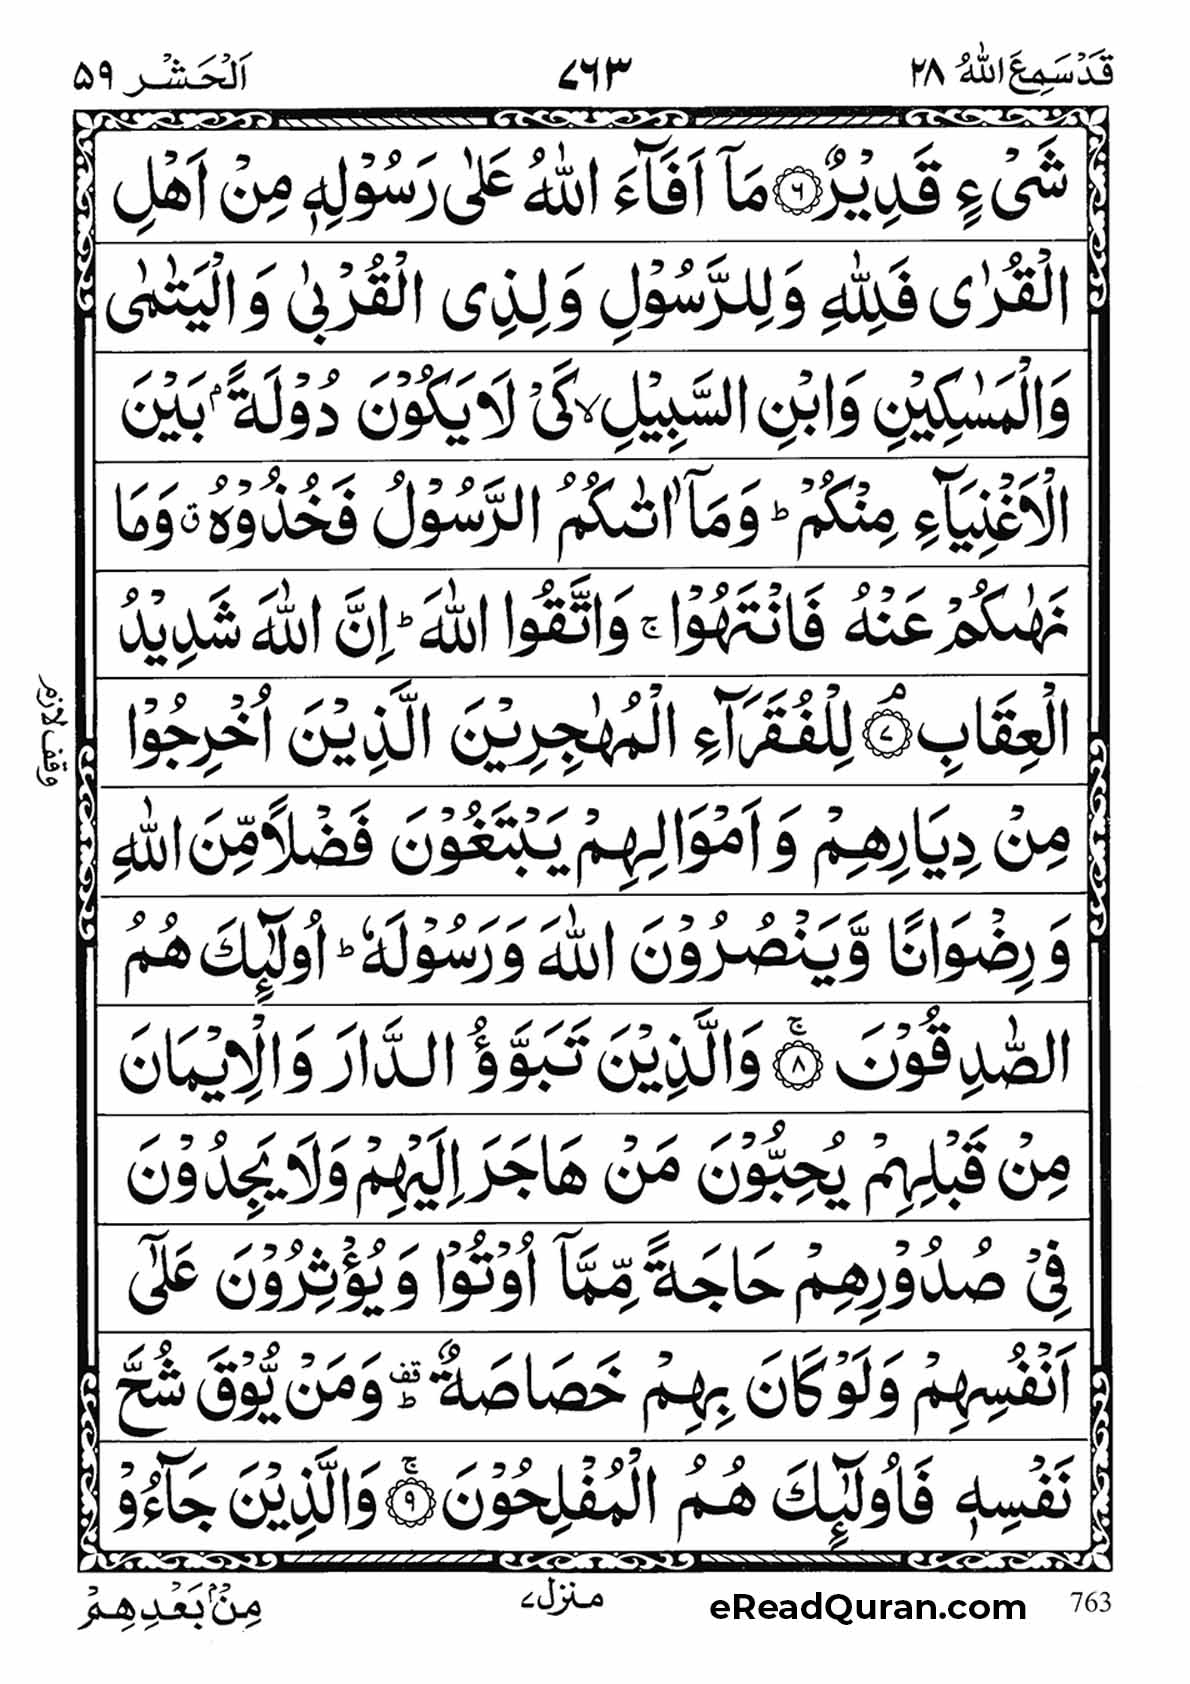 قَدْ سَمِعَ اللّٰهُ ۲۸ ۷۶۳ اَلْحَشْر ۵۹
شَیْءٍ قَدِیْرٌ ۶ مَاۤ اَفَآءَ اللّٰهُ عَلٰی رَسُوْلِهٖ مِنْ اَهْلِ
الْقُرٰی فَلِلّٰهِ وَلِلرَّسُوْلِ وَلِذِی الْقُرْبٰی وَالْیَتٰمٰی
وَالْمَسٰكِیْنِ وَابْنِ السَّبِیْلِ ۙ كَیْ لَا یَكُوْنَ دُوْلَةًۢ بَیْنَ
الْاَغْنِیَآءِ مِنْكُمْ ؕ وَمَاۤ اٰتٰىكُمُ الرَّسُوْلُ فَخُذُوْهُ ۗ وَمَا
نَهٰىكُمْ عَنْهُ فَانْتَهُوْا ۚ وَاتَّقُوا اللّٰهَ ؕ اِنَّ اللّٰهَ شَدِیْدُ
الْعِقَابِ ۘ ۷ لِلْفُقَرَآءِ الْمُهٰجِرِیْنَ الَّذِیْنَ اُخْرِجُوْا
وقف لازم
مِنْ دِیَارِهِمْ وَاَمْوَالِهِمْ یَبْتَغُوْنَ فَضْلًا مِّنَ اللّٰهِ
وَرِضْوَانًا وَّیَنْصُرُوْنَ اللّٰهَ وَرَسُوْلَهٗ ؕ اُولٰٓىِٕكَ هُمُ
الصّٰدِقُوْنَ ۚ ۸ وَالَّذِیْنَ تَبَوَّؤُ الدَّارَ وَالْاِیْمَانَ
مِنْ قَبْلِهِمْ یُحِبُّوْنَ مَنْ هَاجَرَ اِلَیْهِمْ وَلَا یَجِدُوْنَ
فِیْ صُدُوْرِهِمْ حَاجَةً مِّمَّاۤ اُوْتُوْا وَیُؤْثِرُوْنَ عَلٰۤی
اَنْفُسِهِمْ وَلَوْ كَانَ بِهِمْ خَصَاصَةٌ ؕ قف وَمَنْ یُّوْقَ شُحَّ
نَفْسِهٖ فَاُولٰٓىِٕكَ هُمُ الْمُفْلِحُوْنَ ۚ ۹ وَالَّذِیْنَ جَآءُوْ
763 eReadQuran.com منزل ۷ مِنْۢ بَعْدِهِمْ